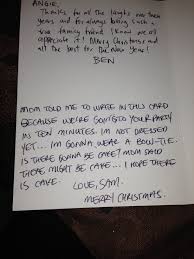 ANGIE,
Thanks for all the laughs over these
years and for always being such a
true family friend. I know we all
appreciate it! Merry Christmas and
all the best for the New Year!
BEN
MOM TOLD ME TO WRITE IN THIS CARD
BECAUSE WE'RE GOING TO YOUR PARTY
IN TEN MINUTES. IM NOT DRESSED
YET... IM GONNA WEAR A BOW-TIE.
IS THERE GONNA BE CAKE? MOM SAID
THERE MIGHT BE CAKE... I HOPE THERE
IS CAKE.
LOVE, SAM.
MERRY CHRISTMAS.